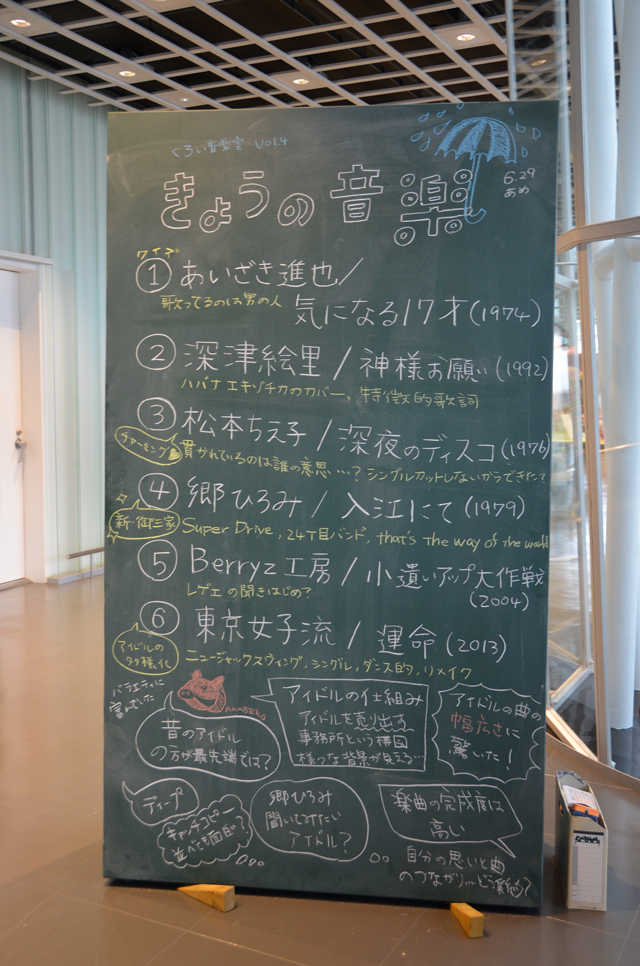 くろい音楽室 Vol.4
きょうの音楽
6.29
あめ
クイズ
① あいざき進也/
歌ってるのは男の人
気になる17才(1974)
② 深津絵里/神様お願い(1992)
ハバナエキゾチカのカバー、特徴的歌詞
③ 松本ちえ子/深夜のディスコ(1976)
チャーミング
貫かれているのは誰の意思…? シングルカットしないからできた?
④ 郷ひろみ/入江にて(1979)
新・御三家
Super Drive, 24丁目バンド, that's the way of the world
⑤ Berryz工房/小遣いアップ大作戦
(2004)
レゲエの聞きはじめ?
⑥ 東京女子流/運命(2013)
アイドルの
多様化
ニュージャックスウィング, シングル, ダンス的, リメイク
バラエティに
富んでいた
AKABEKO
昔のアイドル
の方が最先端では?
アイドルの仕組み
アイドルを売り出す
事務所という構図
様々な背景が見える…
アイドルの曲の
幅広さに
驚いた!
ディープ
キャッチコピー
並べても面白い?
郷ひろみ
聞いてみたい
アイドル?
楽曲の完成度は
高い
自分の思いと曲
のつながり…どう